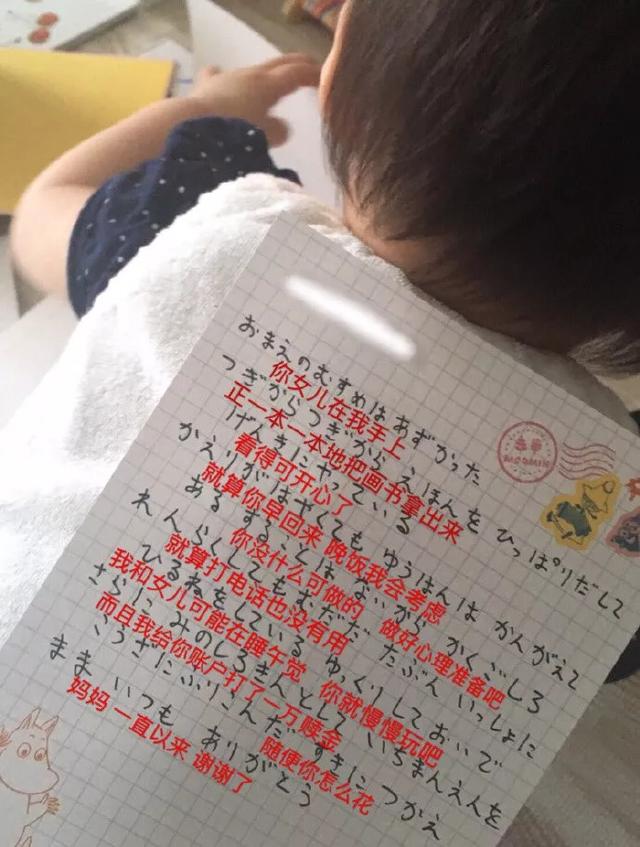 おまえのむすめはあずかった
你女儿在我手上
つぎからつぎから えほんを ひっぱりだして
正一本一本地把画书拿出来
げんきにやっている
看得可开心了
かえりがはやくても ゆうはんは かんがえて
就算你早回来 晚饭我会考虑
ある することは ないから かくごしろ
你没什么可做的 做好心理准备吧
れんらくしてもむだだ たぶん いっしょに
就算打电话也没有用
ひるねをしている ゆっくりしておいで
我和女儿可能在睡午觉 你就慢慢玩吧
さらに みのしろきんとして いちまんえんを
而且我给你账户打了一万赎金
こうざにふりこんだ すきに つかえ
随便你怎么花
まま いつも ありがとう
妈妈 一直以来 谢谢了